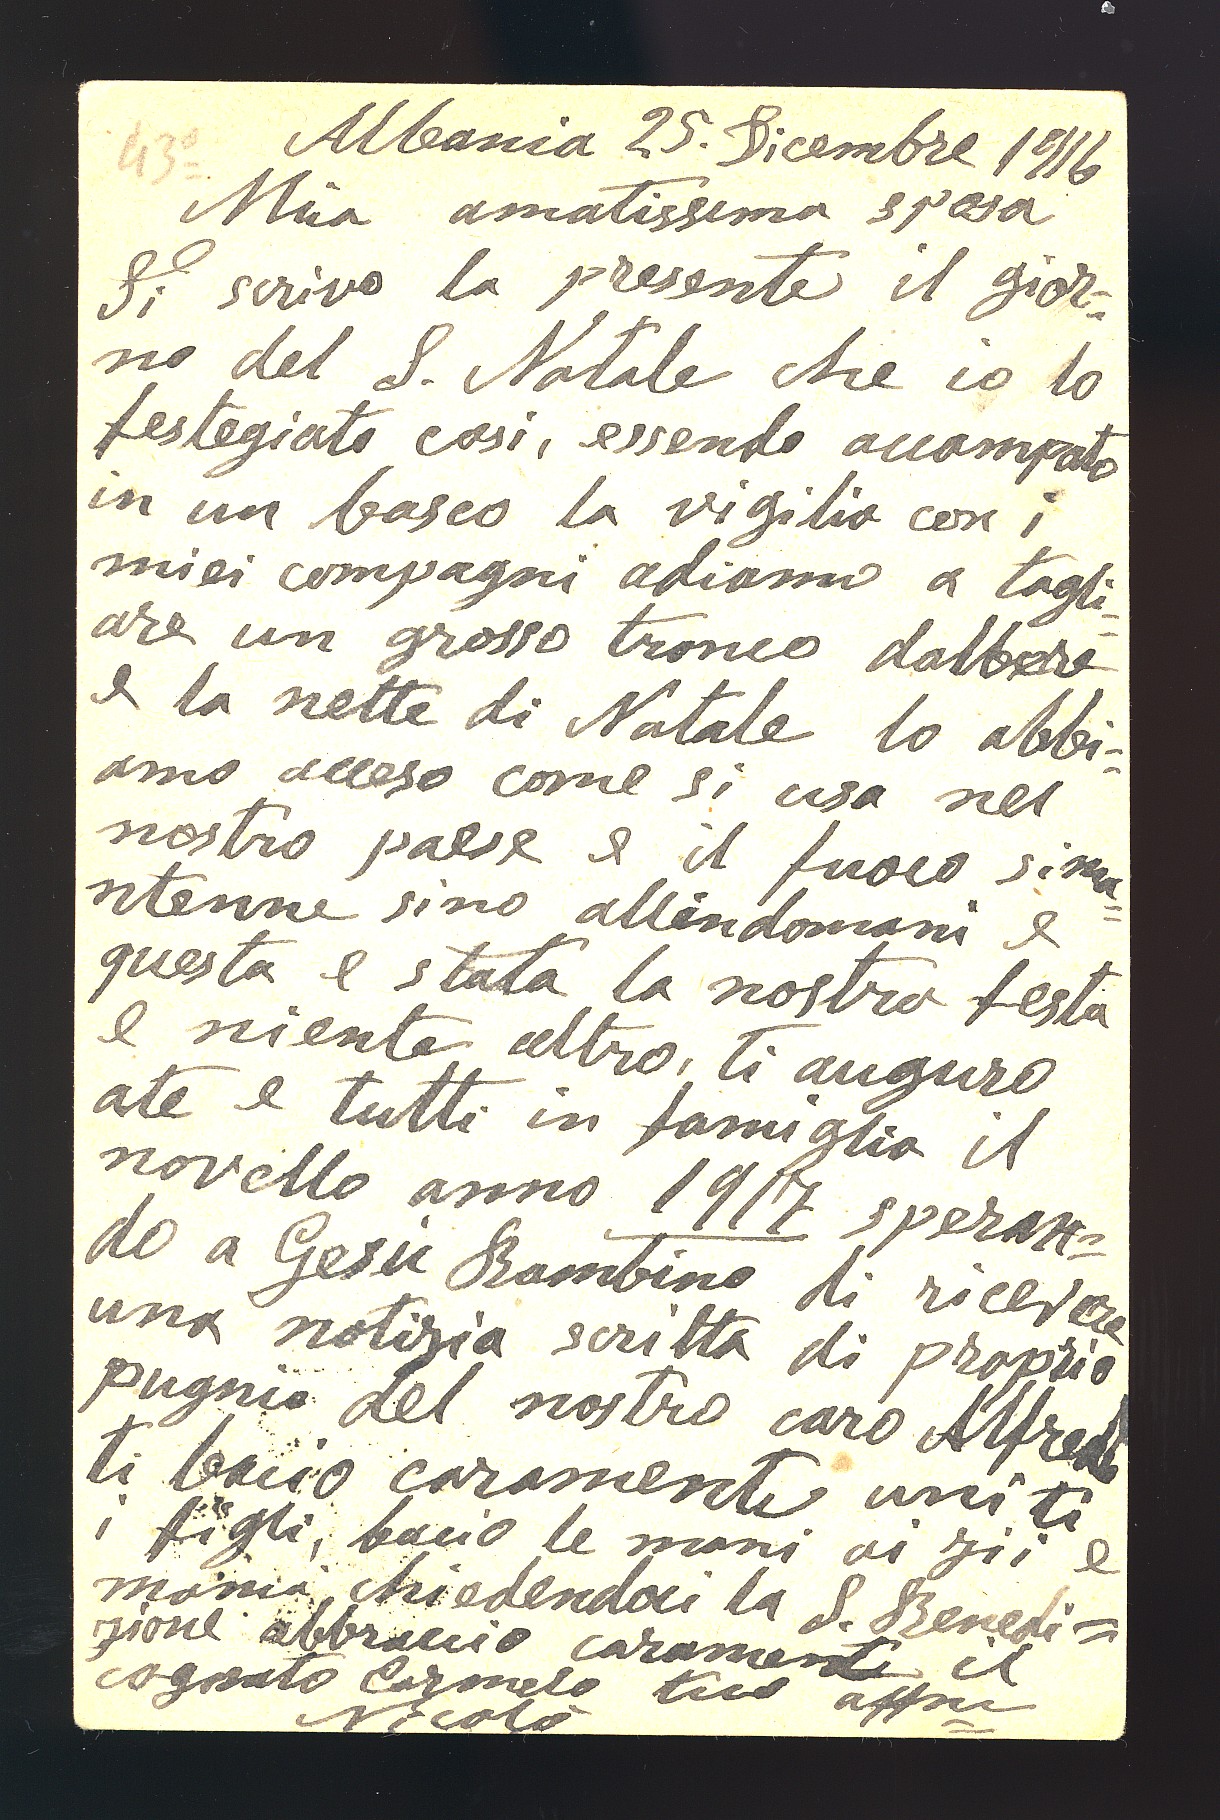 43º
Albania 25. Dicembre 1916
Mia amatissima sposa
Ti scrivo la presente il gior=
no del S. Natale che io lo
festegiato cosi, essendo accampato
in un bosco la vigilia con i
miei compagni adiamo a tagli=
are un grosso tronco dalbore
e la notte di Natale lo abbi=
amo acceso come si usa nel
nostro paese e il fuoco sima=
ntenne sino allindomani e
questa e stata la nostra festa
e niente altro, ti auguro
ate e tutti in famiglia il
novello anno 1917 speran=
do a Gesù Bambino di ricevere
una notizia scritta di proprio
pugnio del nostro caro Alfredo
ti bacio caramente uniti
i figli, bacio le mani ai zii e
mamà, chiedendoci la S. Benedi=
zione abbraccio caramente il
cognato Carmelo tuo affmo
Nicolò